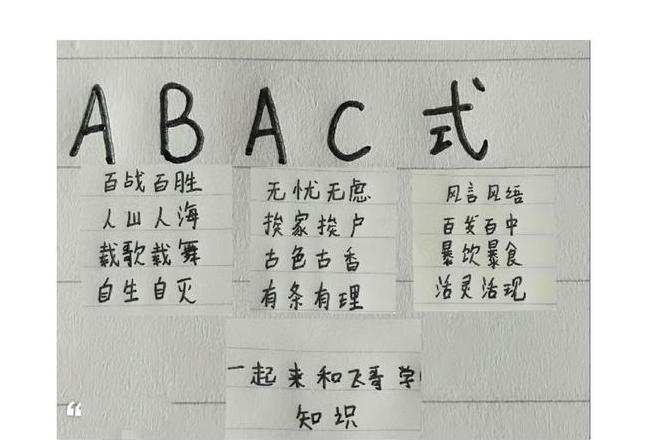 ABAC式
百战百胜
人山人海
载歌载舞
自生自灭
无忧无虑
挨家挨户
古色古香
有条有理
风言风语
百发百中
暴饮暴食
活灵活现
一起来和飞哥学
知识
“